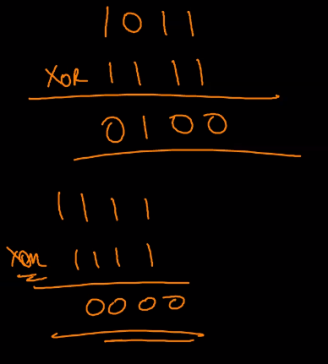 1011
XOR 1111
0100
1111
XOR 1111
0000